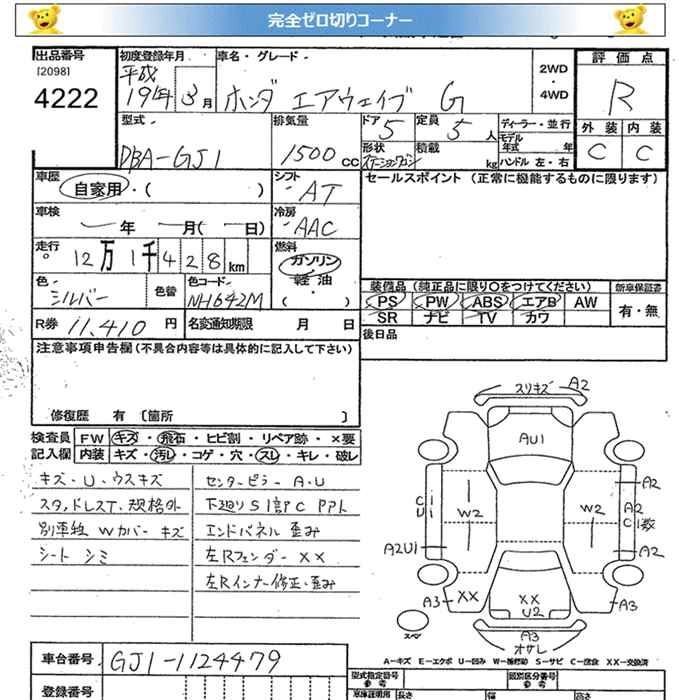 完全ゼロ切りコーナー
出品番号
[2098]
4222
初度登録年月
平成
19年 3月
車名・グレード
ホンダ エアウェイブ G
2WD
・
4WD
評価点
R
外装 内装
C C
型式
DBA-GJ1
排気量
1500 cc
ドア 5
定員 5 人
形状 ステーションワゴン
積載 kg
ディーラー・並行
モデル年式 年
ハンドル 左・右
車歴
自家用・( )
シフト AT
セールスポイント (正常に機能するものに限ります)
車検
年 月( 日)
冷房 AAC
走行
12万1千428km
燃料
ガソリン
軽油
・( )
色
シルバー
色替
色コード
NH642M
装備品 (純正品に限り〇をつけてください)
新車保証書
PS PW ABS エアB AW
SR ナビ TV カワ
有・無
R券 11.410 円
名変通知期限 月 日
後日品
注意事項申告欄 (不具合内容等は具体的に記入して下さい)
修復歴 有 〔箇所 〕
検査員 FW キズ・飛石・ヒビ割・リペア跡・×要
記入欄 内装 キズ・汚レ・コゲ・穴・スレ・キレ・破レ
キズ・U・ウスキズ
センターピラー A・U
スタッドレスT、規格外
下廻りS1部C PPト
別車種 Wカバー キズ
エンドパネル 歪み
シート シミ
左Rフェンダー XX
左Rインナー修正・歪み
スリキズ A2
AU1
A2
C1
U1
W2
W2
A2
C1数
A2U1
A2
A3
XX
XX
U2
A3
A3
オサレ
スペア
A-キズ E-エクボ U-凹み W-補修跡 S-サビ C-腐食 XX-交換済
車台番号
GJ1-1124479
登録番号
型式指定番号
類別区分番号
参考
長さ
幅
高さ